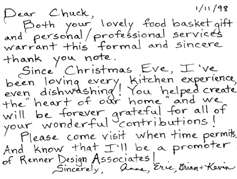 Dear Chuck, 1/11/98
Both your lovely food basket gift
and personal/professional services
warrant this formal and sincere
thank you note.
Since Christmas Eve, I've
been loving every kitchen experience,
even dishwashing! You helped create
the "heart of our home" and we
will be forever grateful for all of
your wonderful contributions!
Please come visit when time permits.
And know that I'll be a promoter
of Renner Design Associates!
Sincerely, Anne, Eric, Brian + Kevin